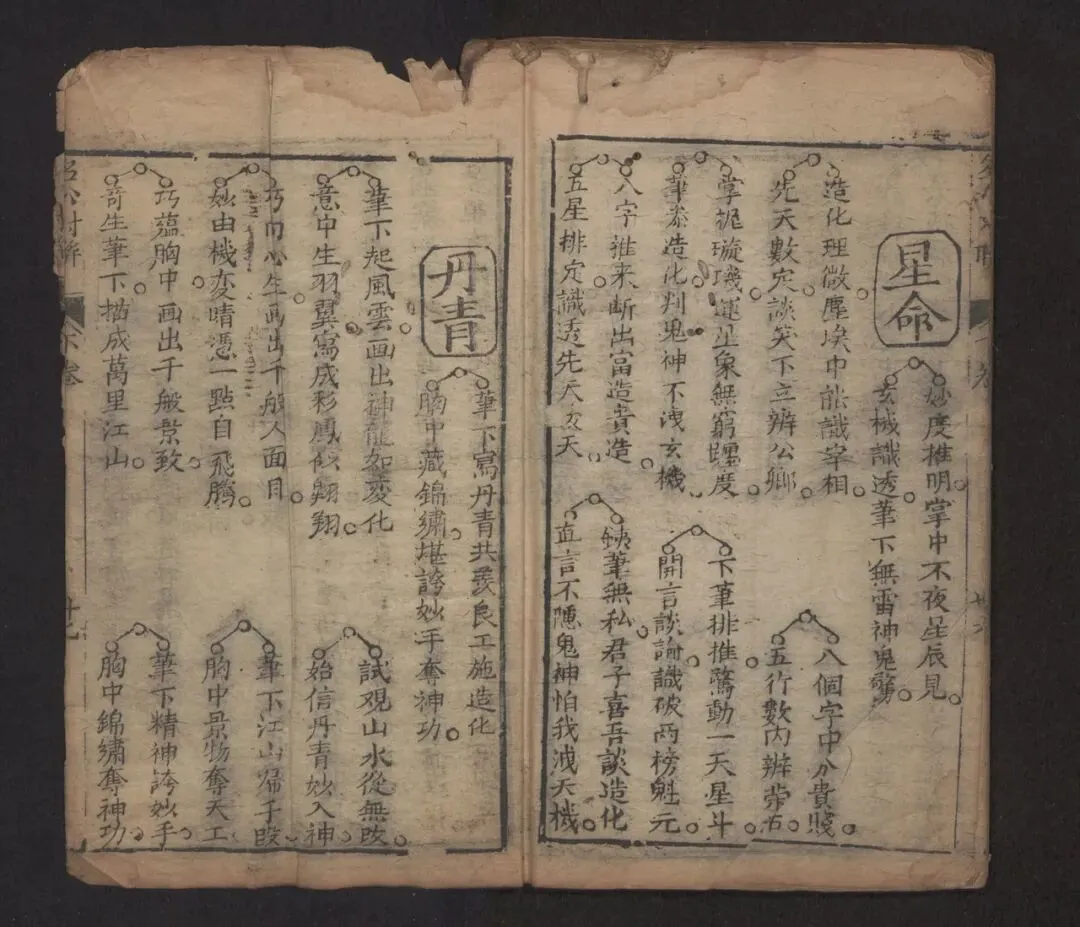 星命
妙度推明掌中不夜星辰見
玄機識透筆下無雷神鬼驚
造化理微塵埃中能識宰相
先天數定談笑下立辨公卿
八個字中分貴賤
五行數內辨
掌握璇璣運並象無窮躔度
筆泰造化判鬼神不洩玄機
下筆排推驚動一天星斗
開言談論識破两榜魁元
八字推来断出富造貴造
五星排定識透先天後天
鉄筆無私君子喜吾談造化
直言不隱鬼神怕我洩天機
丹青
筆下寫丹青共羨良工施造化
胸中藏錦繡堪誇妙手奪神功
筆下起風雲画出神龍如変化
意中生羽翼寫成彩鳳似翱翔
試观山水從無改
始信丹青妙入神
巧由心生画出千般人面目
妙由機変晴憑一點自飛騰
筆下江山帰手段
胸中景物奪天工
巧蘊胸中画出千般景致
竒生筆下描成萬里江山
筆下精神誇妙手
胸中錦繡奪神功
下卷